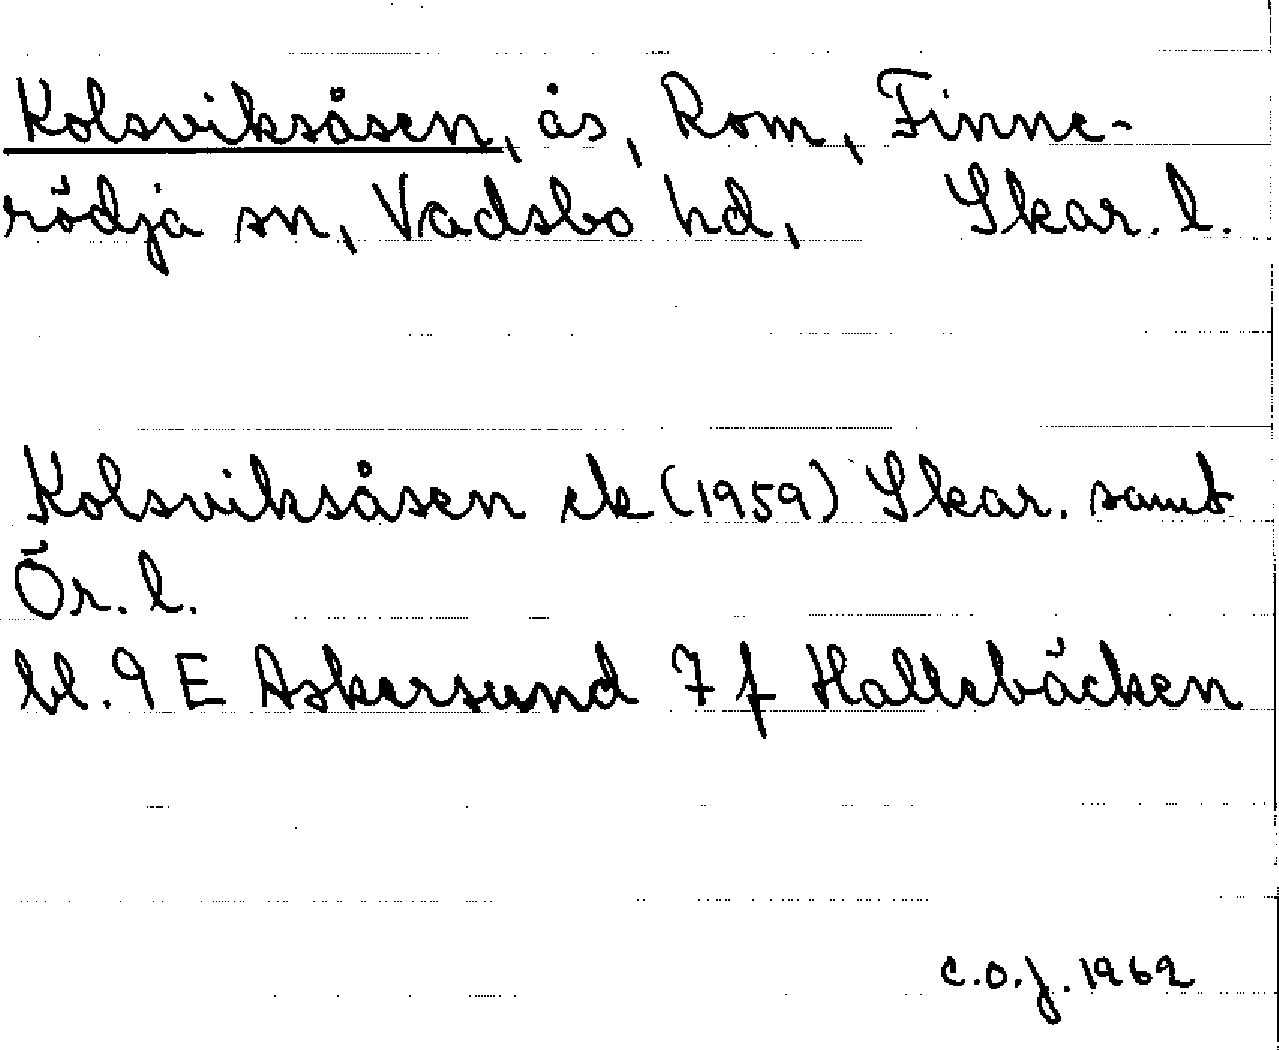 Kolsviksåsen, ås, Rom, Finne-
rödja sn, Vadsbo hd, Skar. l.
Kolsviksåsen ek (1959) Skar. samt
Ör. l.
bl. 9 E Askersund 7 f Hallebäcken
C.O.J. 1962